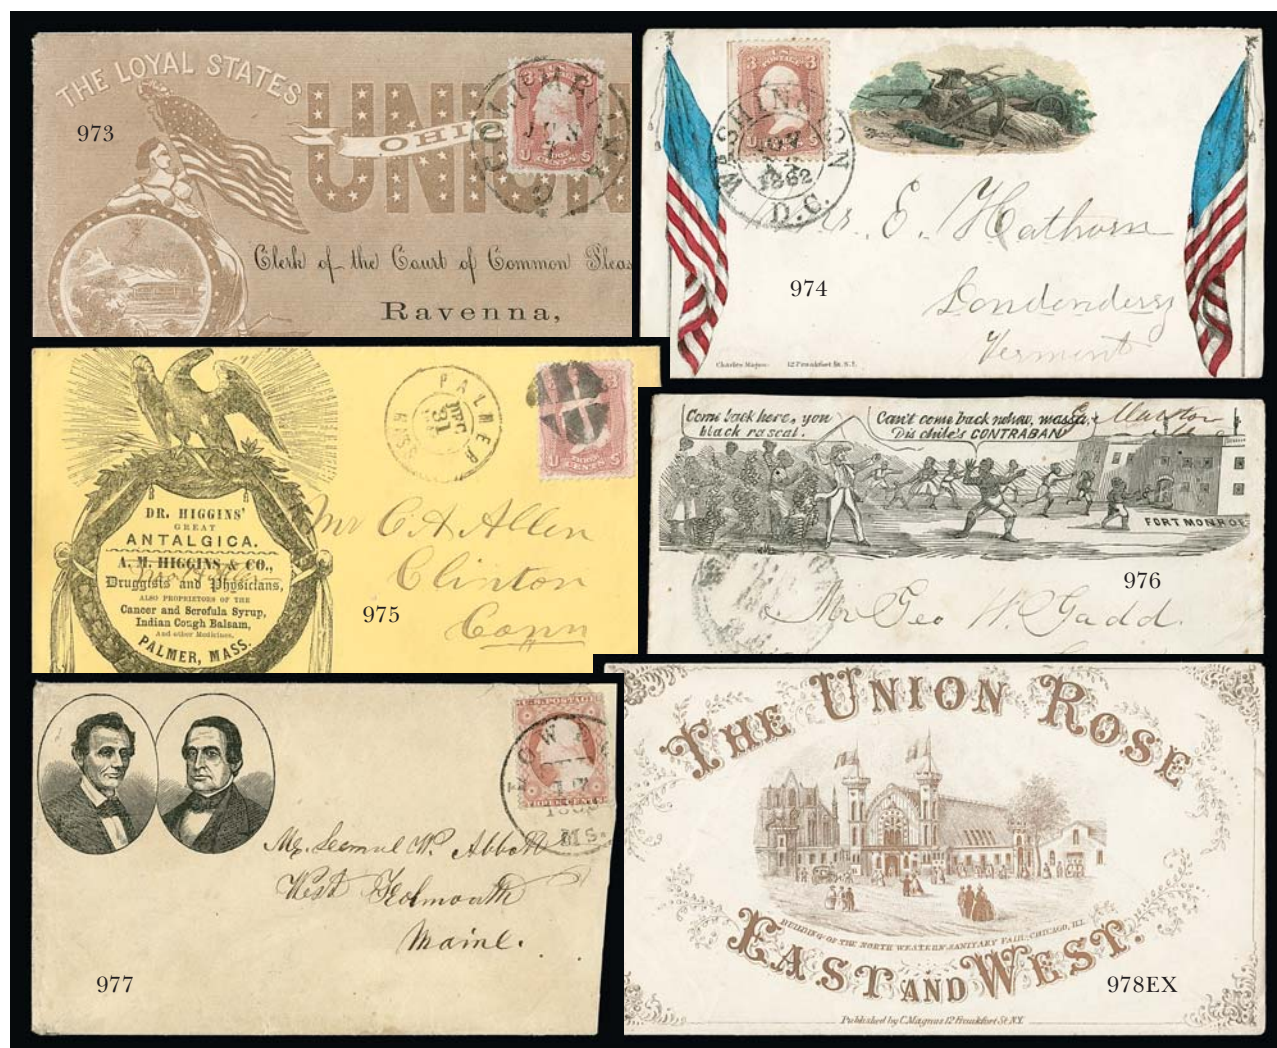 THE LOYAL STATES
UNION
OHIO
973
Clerk of the Court of Common Pleas
Ravenna,
3 3
U S
U.S. POSTAGE
3 3
U S
WASHINGTON
NOV
1862
D.C.
Mr. E. Hathorn
Londonderry
Vermont
974
Charles Magnus 12 Frankfort St. N.Y.
DR. HIGGINS'
GREAT
ANTALGICA.
A. M. HIGGINS & CO.,
Druggists and Physicians,
ALSO PROPRIETORS OF THE
Cancer and Scrofula Syrup,
Indian Cough Balsam,
And other Medicines.
PALMER, MASS.
PALMER
DEC
31
MASS
3
U S
Mr C. A. Allen
Clinton
Conn
975
Come back here, you
black rascal.
Can't come back nohow, massa,
Dis chile's CONTRABAN
FORT MONROE
976
Mr Geo W. Gadd.
U.S. POSTAGE
THREE CENTS
MS.
Mr. Lemuel W. Abbott
West Falmouth
Maine.
977
THE UNION ROSE
BUILDING OF THE NORTH WESTERN SANITARY FAIR, CHICAGO, ILL.
EAST AND WEST.
978EX
Published by C. Magnus 12 Frankfort St. N.Y.